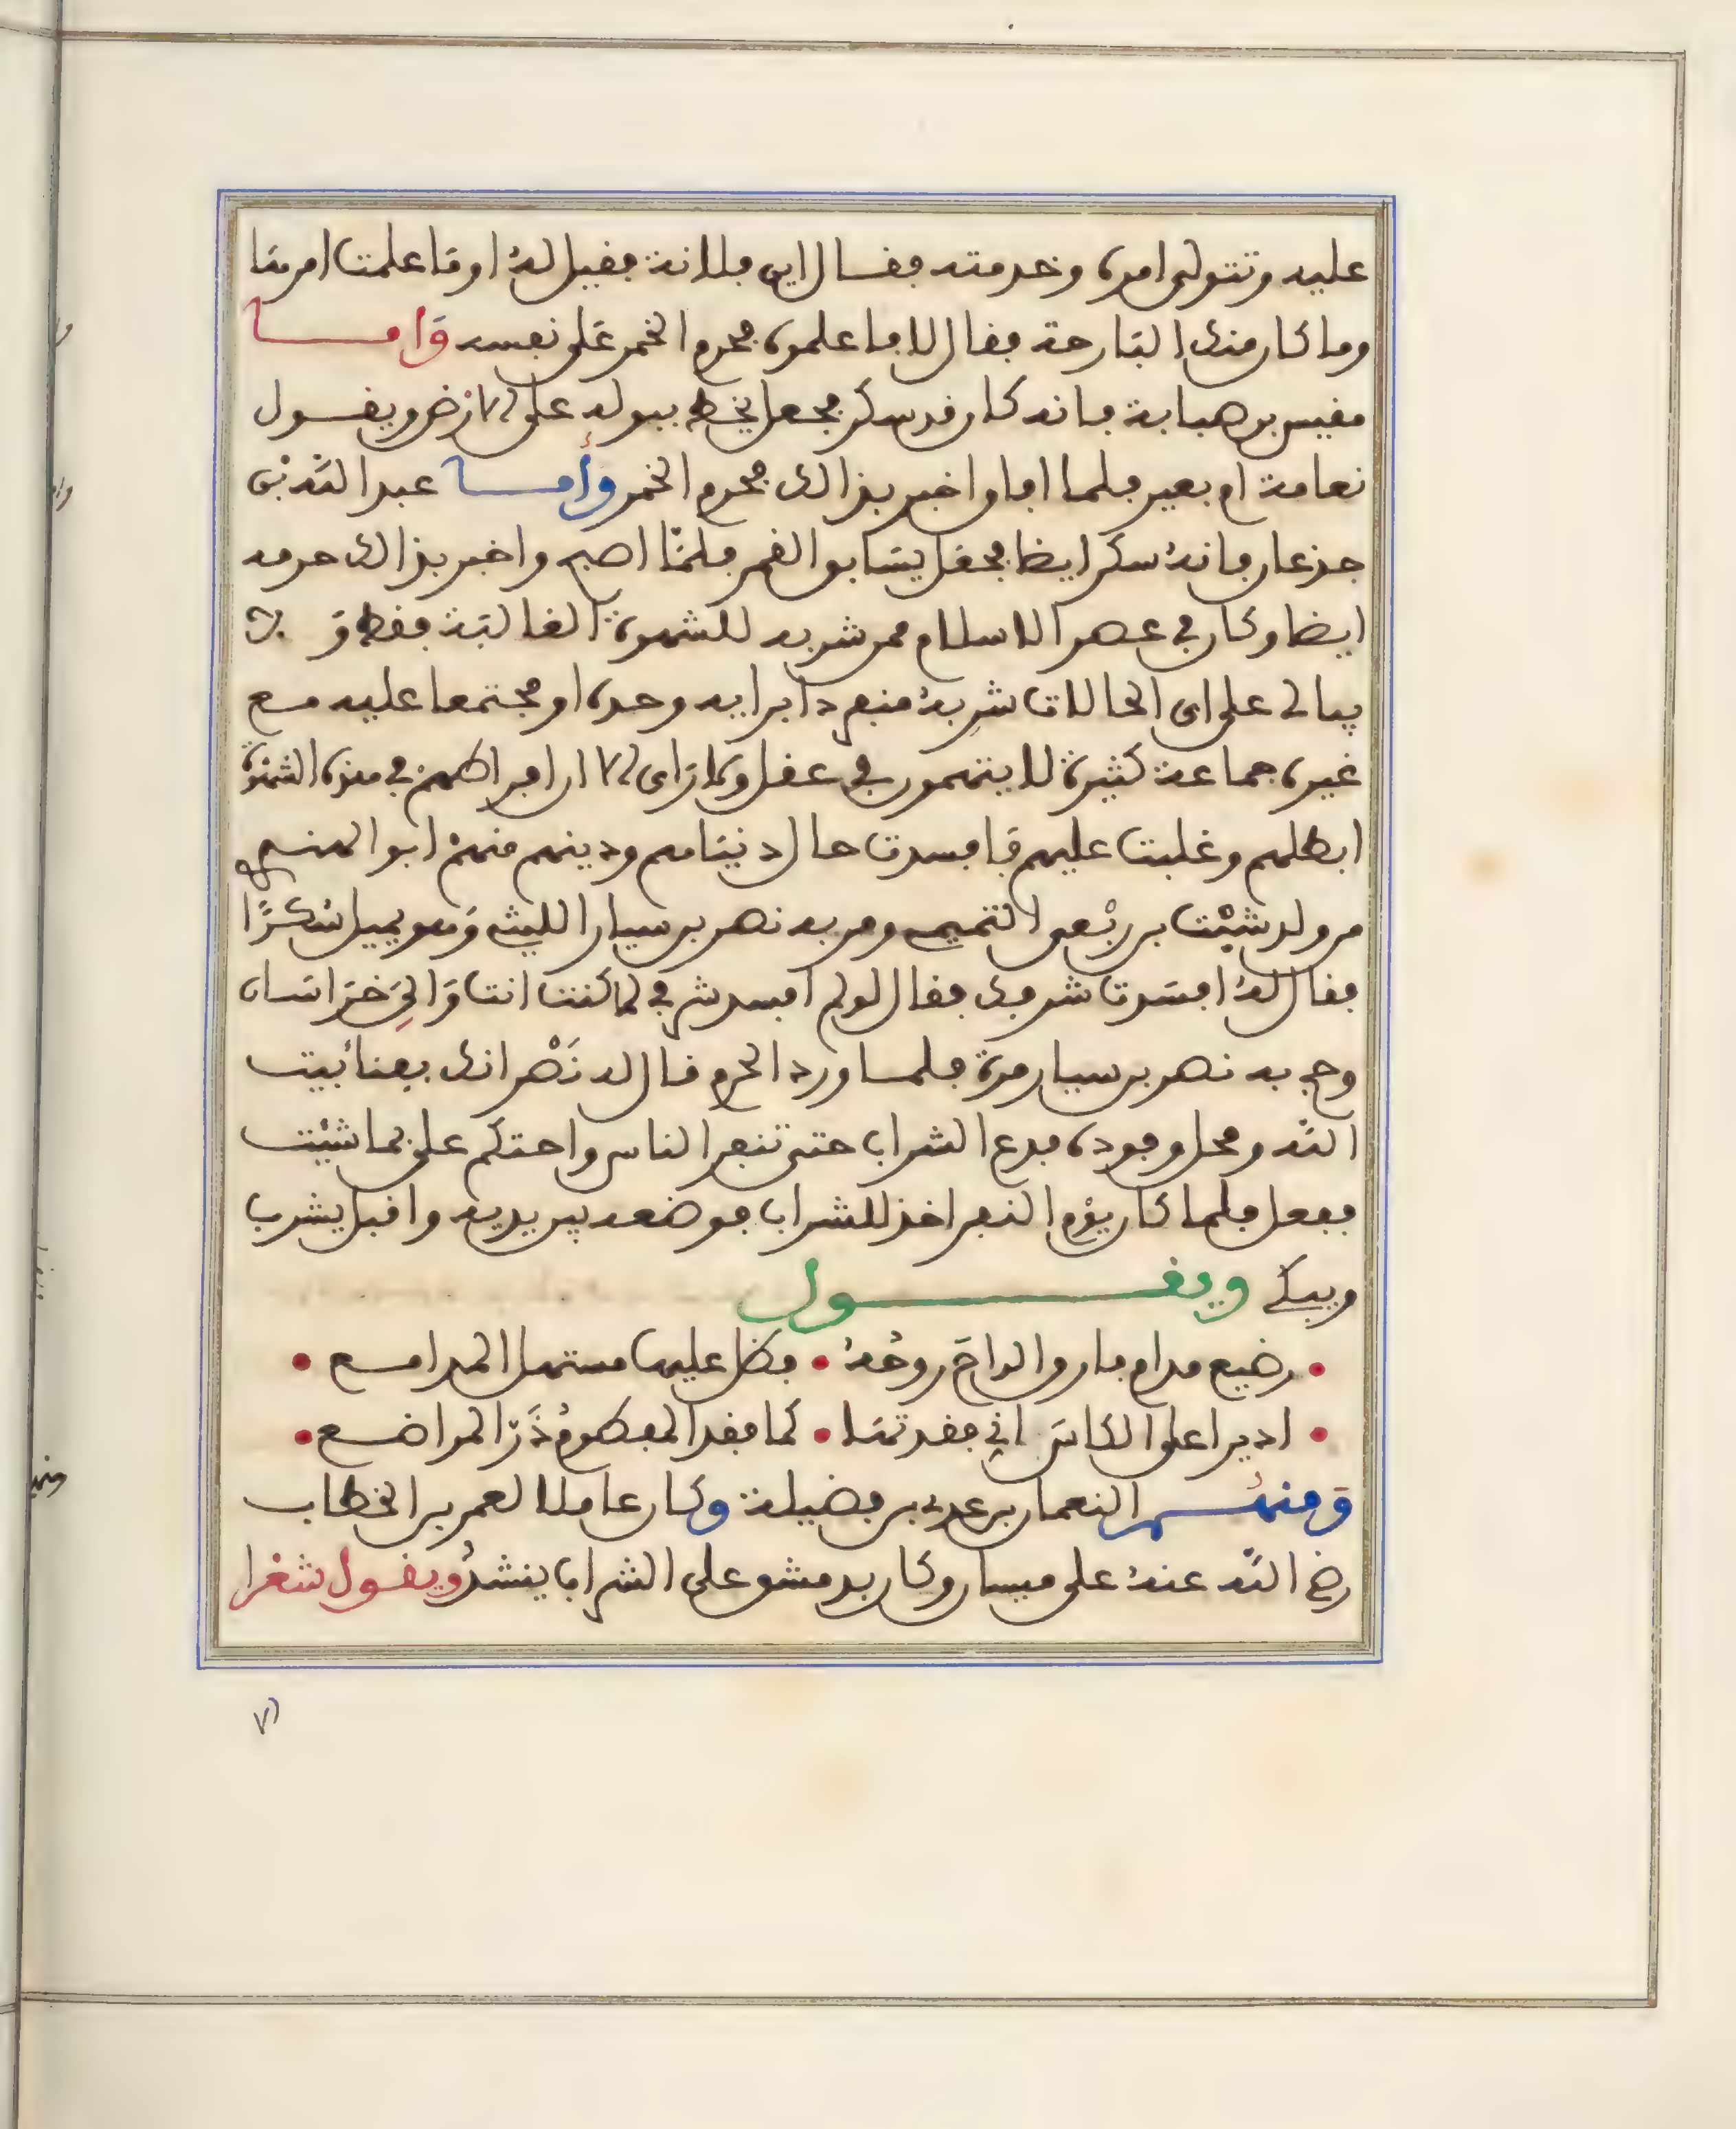 عليه وتتولى امره وخدمته فقال اين فلانة فقيل له اوما علمت امرها
وما كان منك البارحة فقال لا فاعلموه فحرم الخمر على نفسه وامـا
مقيس بن صبابة فانه كان قد سكر فجعل يخط ببوله على الارض ويقول
نعامة او بعير فلما افاق واخبر بذالك فحرم الخمر وأمـا عبد الله بن
جذعان فانه سكر ايضا فجعل يساور القمر فلمّا اصبح واخبر بذالك حرمه
ايضا وكان في عصر الاسلام ممن شربه للشهوة الغالبة فقط ولا
يبالي على اي الحالات شربه منفردا برايه وحده او مجتمعا عليه مع
غيره جماعة كثيرة لا ينتمون في عقل ولا راي الا ان افراطهم في هذه الشهوة
ابطلهم وغلبت عليهم فافسدت حال دنياهم ودينهم منهم ابو الهندي
من ولد شبْث بن ربْعي التميمي ومر به نصر بن سيار الليثي وهو يميل سكرًا
فقال له افسدت شرفك فقال لو لم افسد شرفي لما كنت انت والي خراسان
وحج به نصر بن سيار مرة فلما ورد الحرم قال له نَصْر انك بفنا بيت
الله ومحل وفوده فدع الشراب حتى تنفر الناس واحتكم علي بما شئت
ففعل فلما كان يوم النفر اخذ للشراب فوضعه بين يديه واقبل يشرب
ويبكي ويقـول
• رضيع مدام فارق الراح روحه • فظل عليها مستهل المدامـع •
• اديرا علي الكاس اني فقدتها • كما فقد المفطوم دَرّ المراضـع •
ومنهـم النعمان بن عدي بن فضيلة وكان عاملا لعمر بن الخطاب
رضي الله عنه على ميسان وكان يدمن على الشراب ينشد ويقول شعرا